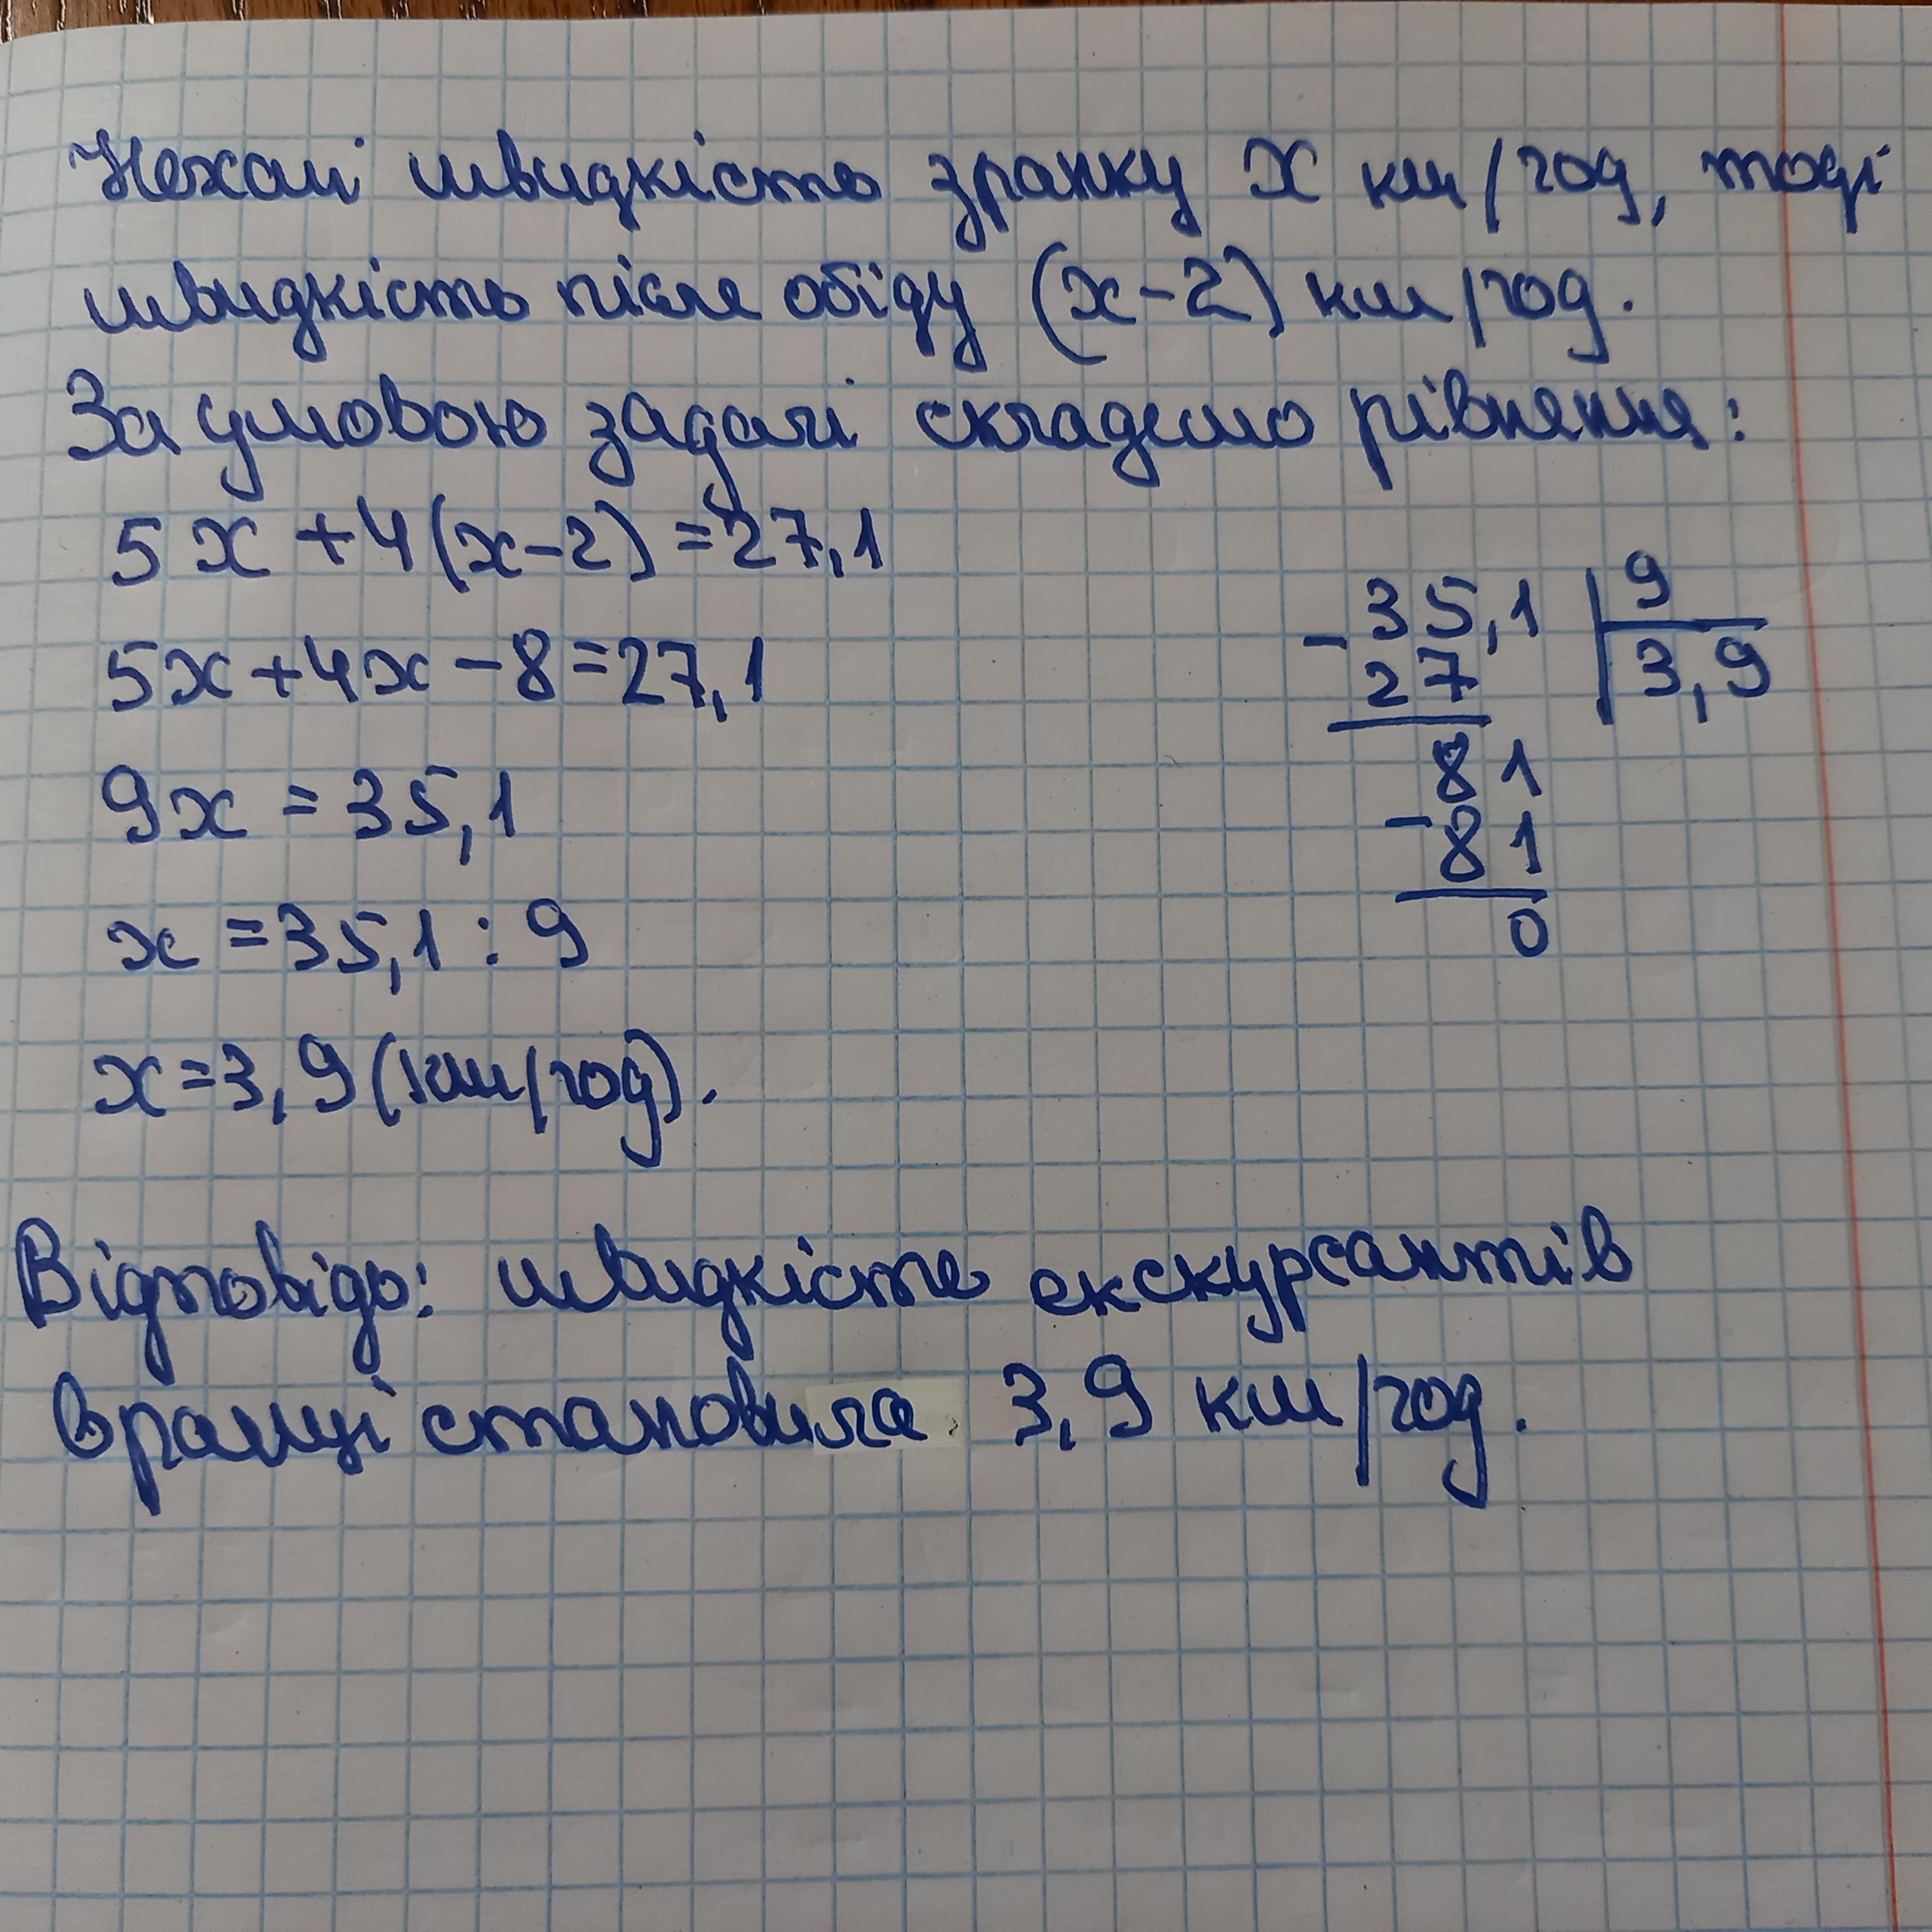 Нехай швидкість зранку x км/год, тоді
швидкість після обіду (x-2) км/год.
За умовою задачі складемо рівняння:
5x+4(x-2)=27,1
5x+4x-8=27,1
9x=35,1
x=35,1:9
x=3,9(км/год).
-35,1 | 9
27 | 3,9
81
-81
0
Відповідь: швидкість екскурсантів
вранці становила 3,9 км/год.